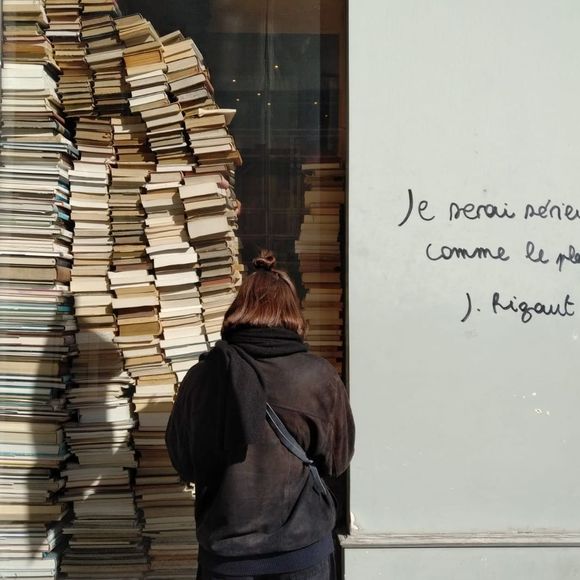 Je serai série
comme le pla
J. Rigaut